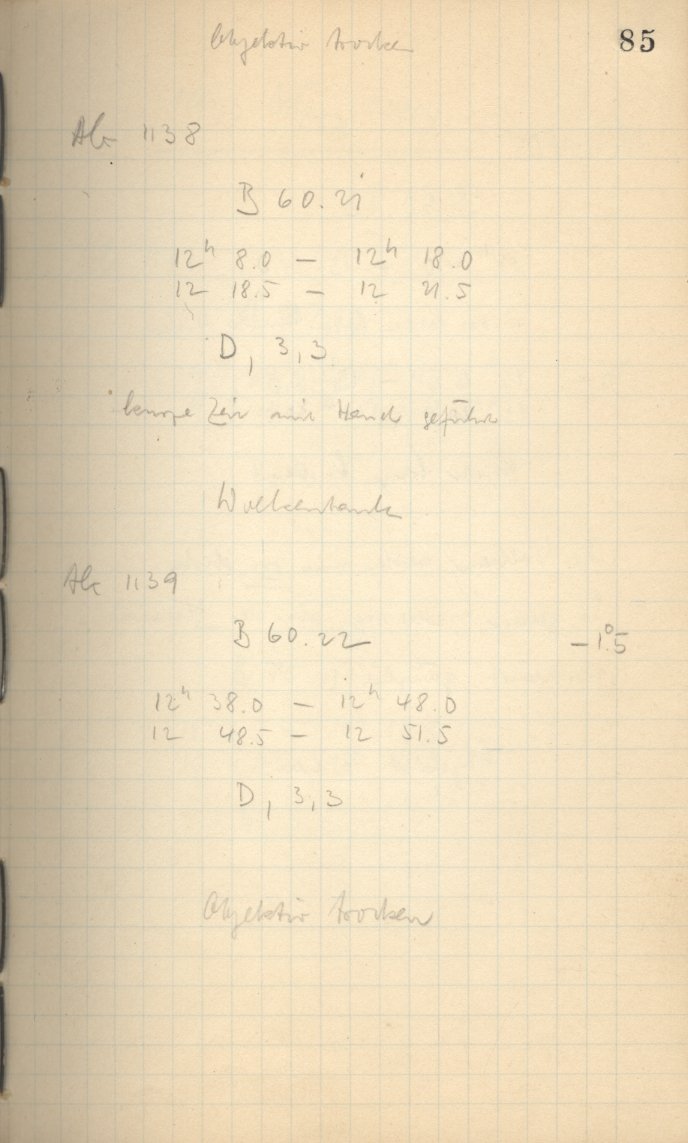 85
Objektiv trocken
Ab 1138
B 60.21
12h 8.0 – 12h 18.0
12 18.5 – 12 21.5
D, 3,3
kurze Zeit mit Hand geführt
Wolkenbank
Ab 1139
B 60.22 –1°.5
12h 38.0 – 12h 48.0
12 48.5 – 12 51.5
D, 3,3
Objektiv trocken